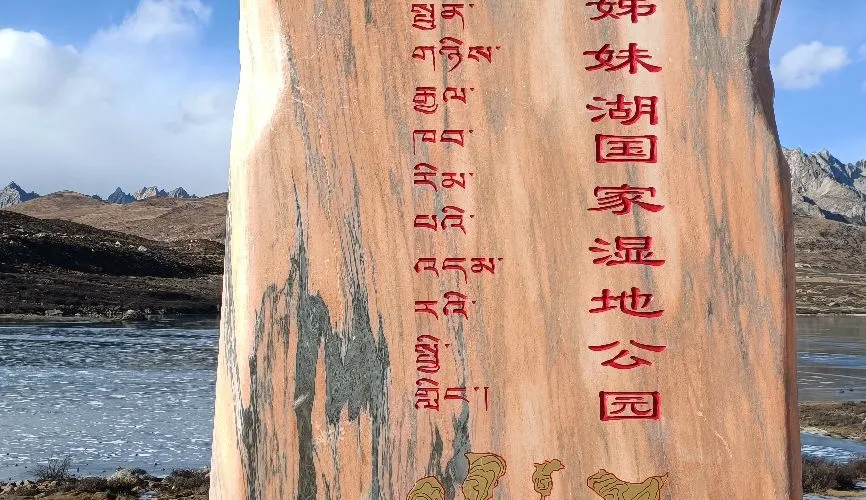 姊妹湖国家湿地公园
སྤུན་གཉིས་རྒྱལ་ཁབ་རིམ་པའི་འདམ་རའི་སྤྱི་གླིང་།